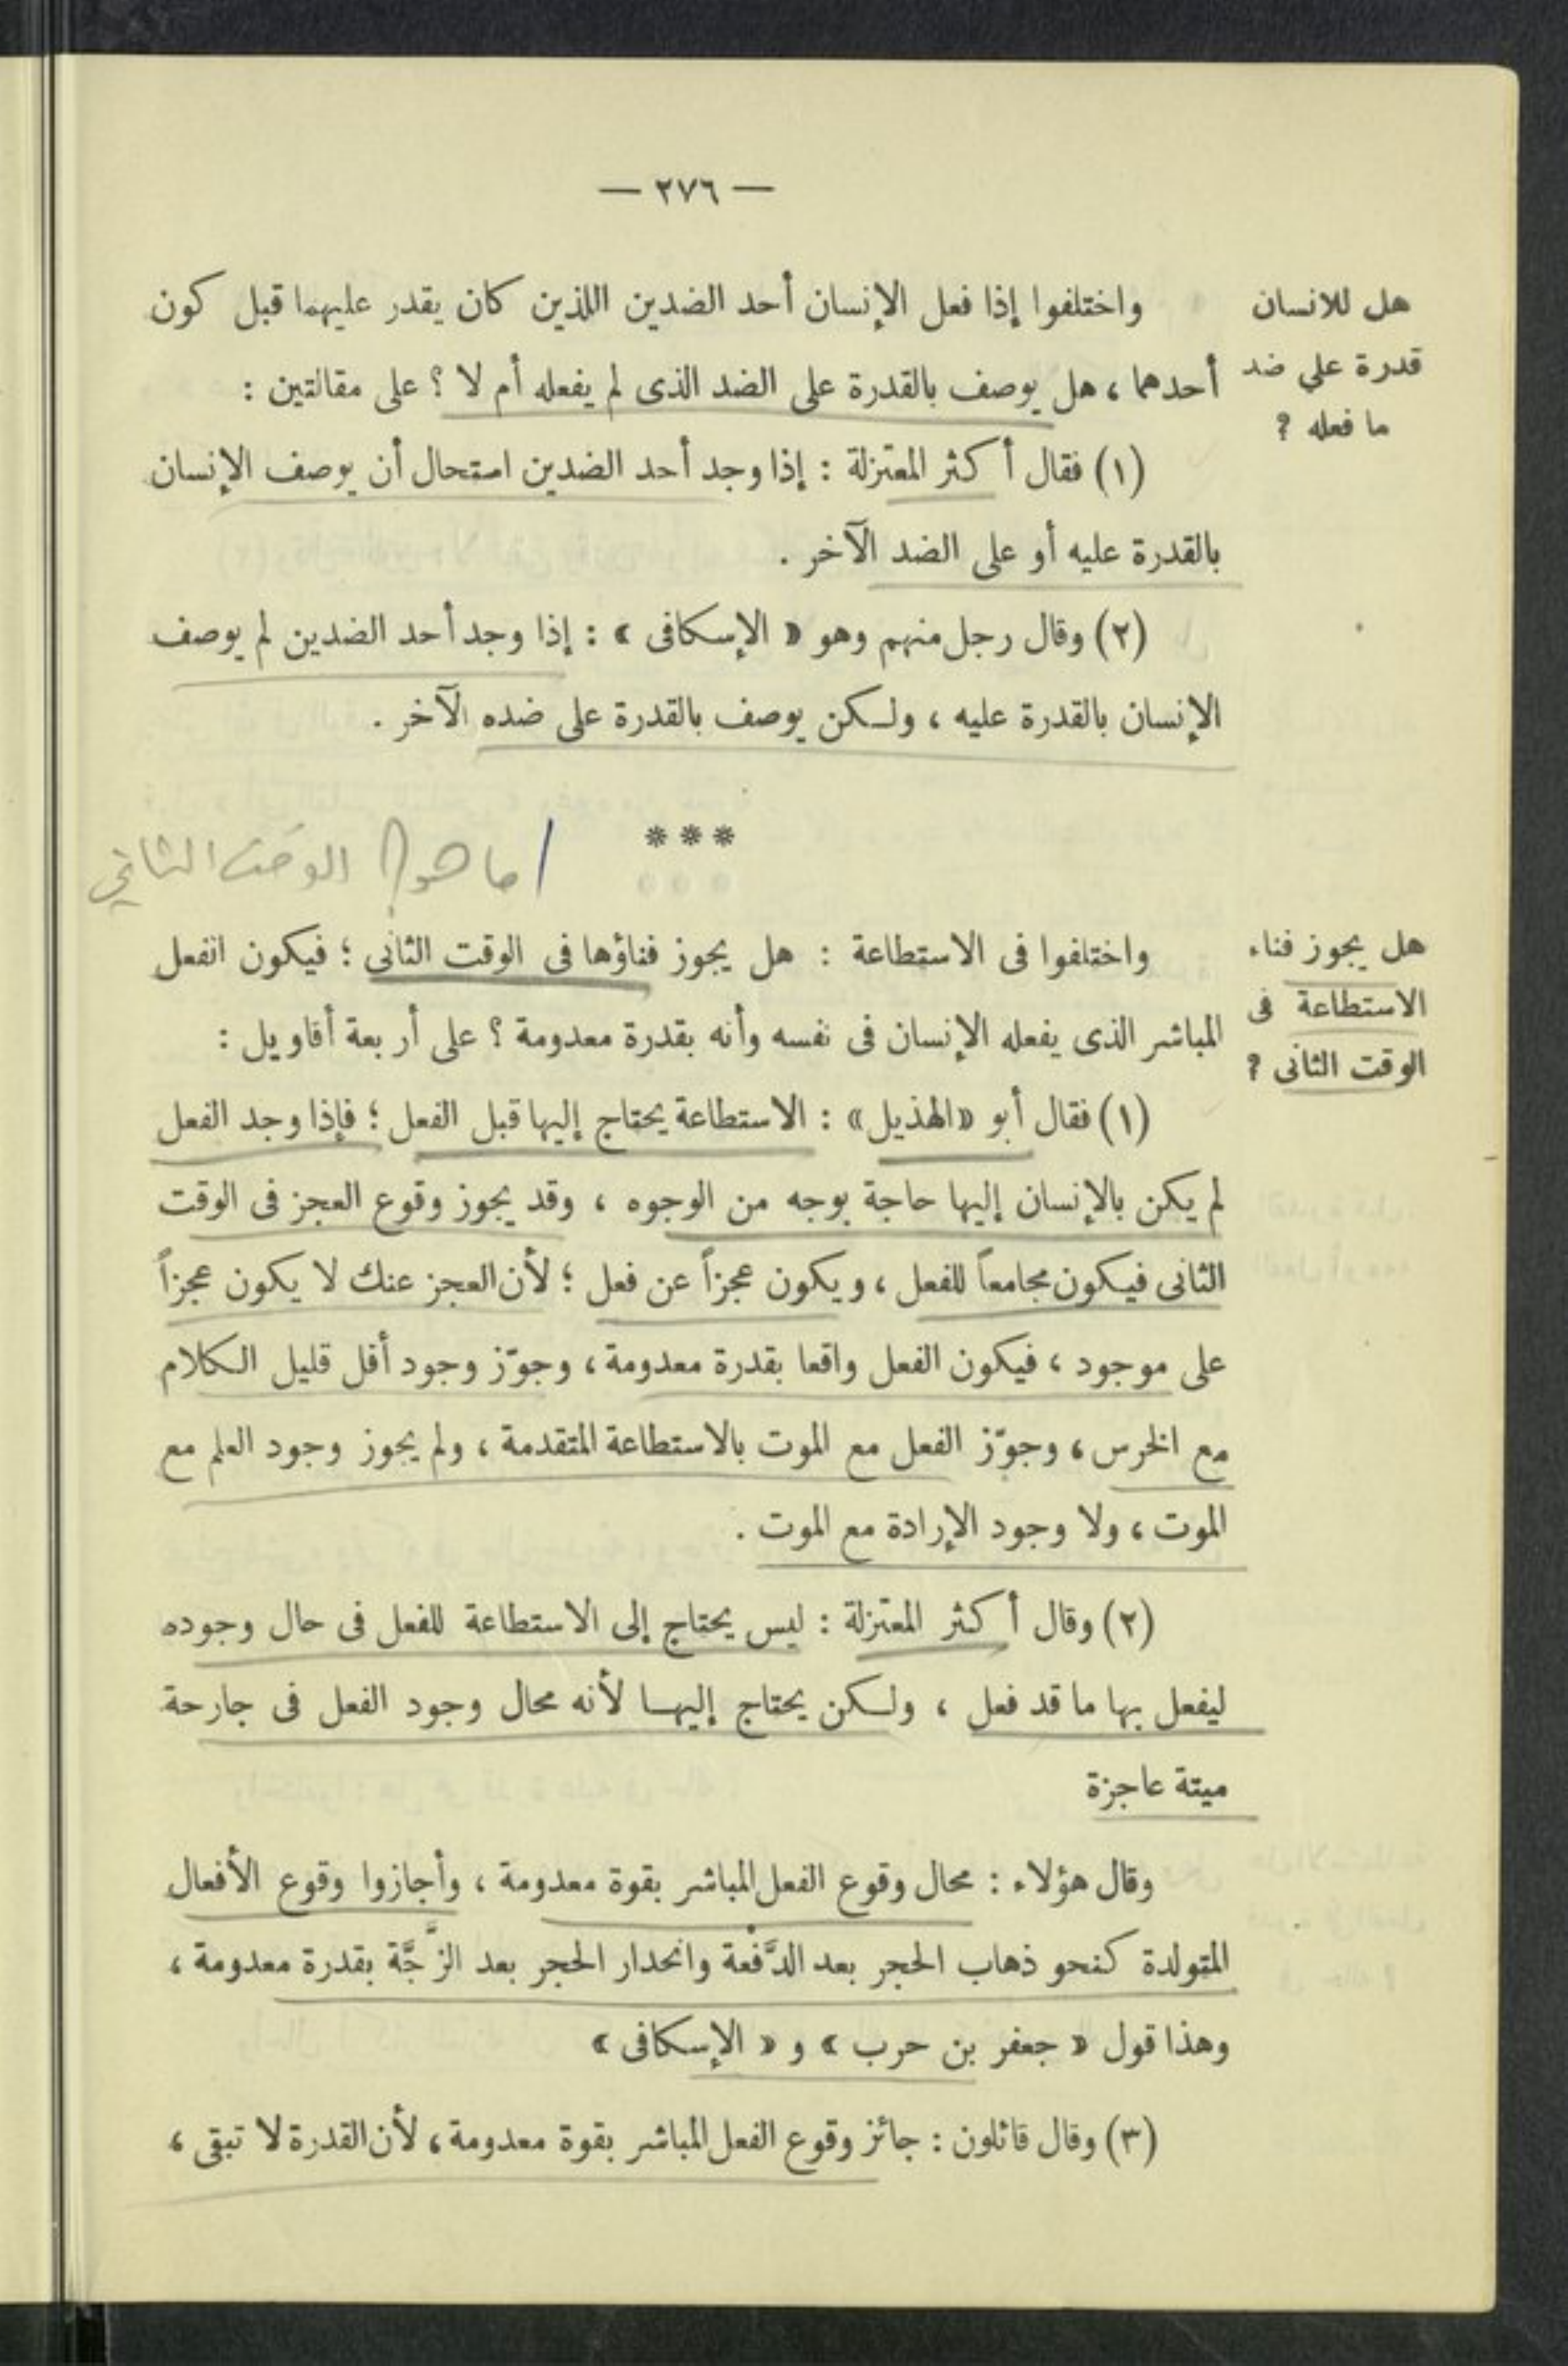 — ٢٧٦ —
هل للانسان
قدرة علي ضد
ما فعله ؟
واختلفوا إذا فعل الإنسان أحد الضدين اللذين كان يقدر عليهما قبل كون
أحدهما ، هل يوصف بالقدرة على الضد الذى لم يفعله أم لا ؟ على مقالتين :
(١) فقال أكثر المعتزلة : إذا وجد أحد الضدين استحال أن يوصف الإنسان
بالقدرة عليه أو على الضد الآخر .
(٢) وقال رجل منهم وهو « الإسكافى » : إذا وجد أحد الضدين لم يوصف
الإنسان بالقدرة عليه ، ولكن يوصف بالقدرة على ضده الآخر .
***
/ ما هو الوقت الثاني
هل يجوز فناء
الاستطاعة فى
الوقت الثانى ؟
واختلفوا فى الاستطاعة : هل يجوز فناؤها فى الوقت الثانى ؛ فيكون الفعل
المباشر الذى يفعله الإنسان فى نفسه وأنه بقدرة معدومة ؟ على أربعة أقاويل :
(١) فقال أبو «الهذيل» : الاستطاعة يحتاج إليها قبل الفعل ؛ فإذا وجد الفعل
لم يكن بالإنسان إليها حاجة بوجه من الوجوه ، وقد يجوز وقوع العجز فى الوقت
الثانى فيكون مجامعاً للفعل ، ويكون عجزاً عن فعل ؛ لأن العجز عنك لا يكون عجزاً
على موجود ، فيكون الفعل واقعا بقدرة معدومة ، وجوّز وجود أقل قليل الكلام
مع الخرس ، وجوّز الفعل مع الموت بالاستطاعة المتقدمة ، ولم يجوز وجود العلم مع
الموت ، ولا وجود الإرادة مع الموت .
(٢) وقال أكثر المعتزلة : ليس يحتاج إلى الاستطاعة للفعل فى حال وجوده
ليفعل بها ما قد فعل ، ولكن يحتاج إليها لأنه محال وجود الفعل فى جارحة
ميتة عاجزة
وقال هؤلاء : محال وقوع الفعل المباشر بقوة معدومة ، وأجازوا وقوع الأفعال
المتولدة كنحو ذهاب الحجر بعد الدَّفْعة وانحدار الحجر بعد الزَّجَّة بقدرة معدومة ،
وهذا قول « جعفر بن حرب » و « الإسكافى »
(٣) وقال قائلون : جائز وقوع الفعل المباشر بقوة معدومة ، لأن القدرة لا تبقى ،